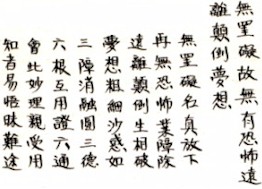 無罣礙故無有恐怖遠
離顛倒夢想
無罣礙名真放下
再無恐怖業障除
遠離顛倒生相破
夢想粗細沙惑如
三障消融圓三德
六根互用證六通
會此妙理親受用
知音易悟昧難途